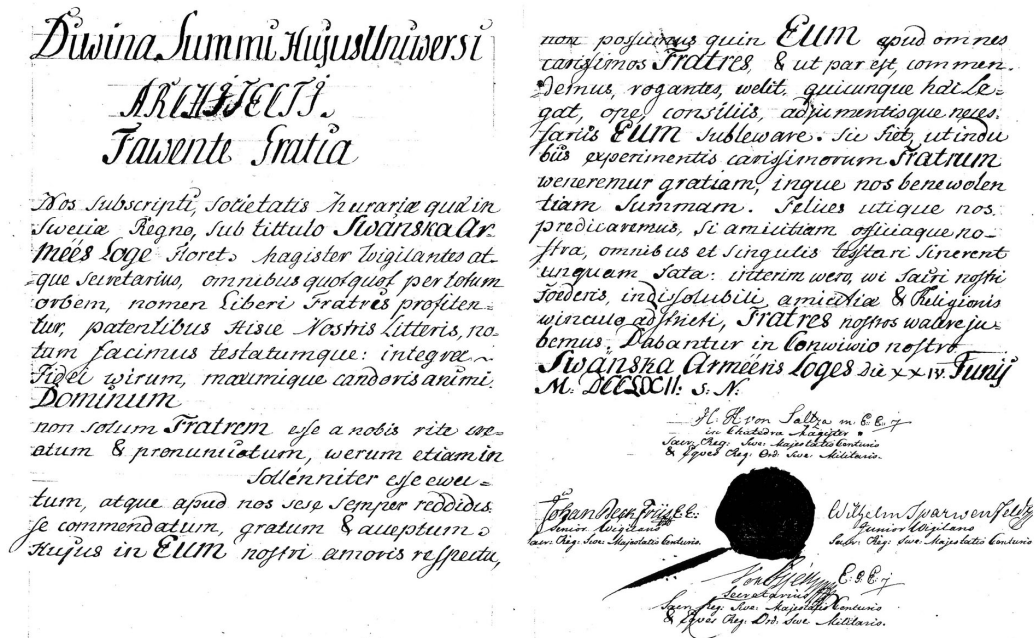 Diwina Summi Hujus Uniwersi
ARCHITECTI.
Fawente Gratia
Nos subscripti, societatis Murariæ quæ in
Sweciæ Regno, sub tittulo Swänska Ar-
méës Loge floret. Magister Wigilantes at-
que secretarius, omnibus quotquot per totum
orbem, nomen Liberi Fratres profiten-
tur, patentibus Hisce Nostris Litteris, no-
tum facimus testatumque: integræ
Fidei wirum, maximique candoris animi.
Dominum
non solum Fratrem esse a nobis rite cre-
atum & pronunciatum, werum etiam in
sollenniter esse ewec-
tum, atque apud nos sese semper reddidis
se commendatum, gratum & acceptum.
Hujus in Eum nostri amoris respectu,
non possumus quin Eum apud omnes
carissimos Fratres, & ut par est, commen-
demus, rogantes, welit, quicunque hæc Le-
gat, ope, consiliis, adjumentisque neces-
sariis Eum subleware. Sic fiet, ut indu
biis experimentis carissimorum Fratrum
weneremur gratiam, inque nos benewolen
tiam Summam. Felices utique nos
predicaremus, si amicitiam officiaque no-
stra, omnibus et singulis testari sinerent
unquam fata: interim wero, wi sacri nostri
Foederis, indissolubili, amicitiæ & Religionis
winculo adstricti, Fratres nostros walere ju-
bemus. Dabantur in Conwiwio nostro
Swänska Arméëns Loges Die XXIV. Junij
M: DCCLXII: S: N:
H. R von Saltza m. E: E: J
in Chatedra Magister
Sacr: Reg: Swe: Majestatis Centurio
& Eques Reg: Ord: Swe Militaris.
Johan Beck Friis E. E:
Senior Wigilans
Sacr: Reg: Swe: Majestatis Centurio.
Wilhelm Sparwenfeldt
Junior Wigilans
Sacr: Reg: Swe: Majestatis Centurio
E: E: J
Secretarius
Sacr Reg: Swe: Majestatis Centurio
& Eques Reg: Ord: Swe Militaris.